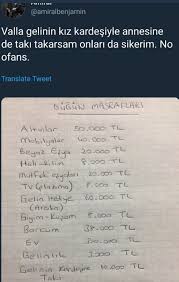 @amiralbenjamin
Valla gelinin kız kardeşiyle annesine
de takı takarsam onları da sikerim. No
ofans.
Translate Tweet
DÜĞÜN MASRAFLARI
Altınlar 50.000 TL
Mobilyalar 40.000 TL
Beyaz Eşya 20.000 TL
Halı-kilim 8.000 TL
Mutfak eşyaları 20.000 TL
TV (plazma) 8.000 TL
Gelin Hediye 60.000 TL
(Araba)
Giyim-Kuşam 5.000 TL
Borcum 38.000 TL
Ev TL
Gelinlik 3.000 TL
Gelinin Kardeşine 10.000 TL
Takı